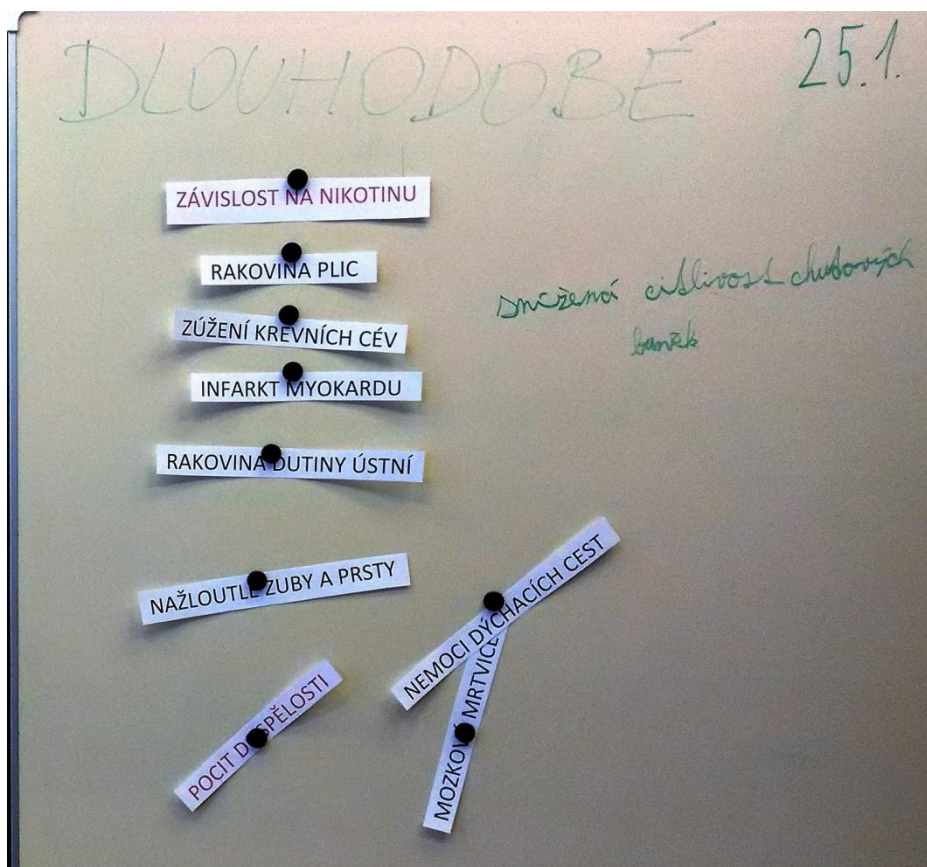 DLOUHODOBÉ
25.1.
ZÁVISLOST NA NIKOTINU
RAKOVINA PLIC
ZÚŽENÍ KREVNÍCH CÉV
INFARKT MYOKARDU
RAKOVINA DUTINY ÚSTNÍ
NAŽLOUTLÉ ZUBY A PRSTY
POCIT DOSPĚLOSTI
NEMOCI DÝCHACÍCH CEST
MOZKOVÁ MRTVICE
snížená citlivost chuťových
buněk